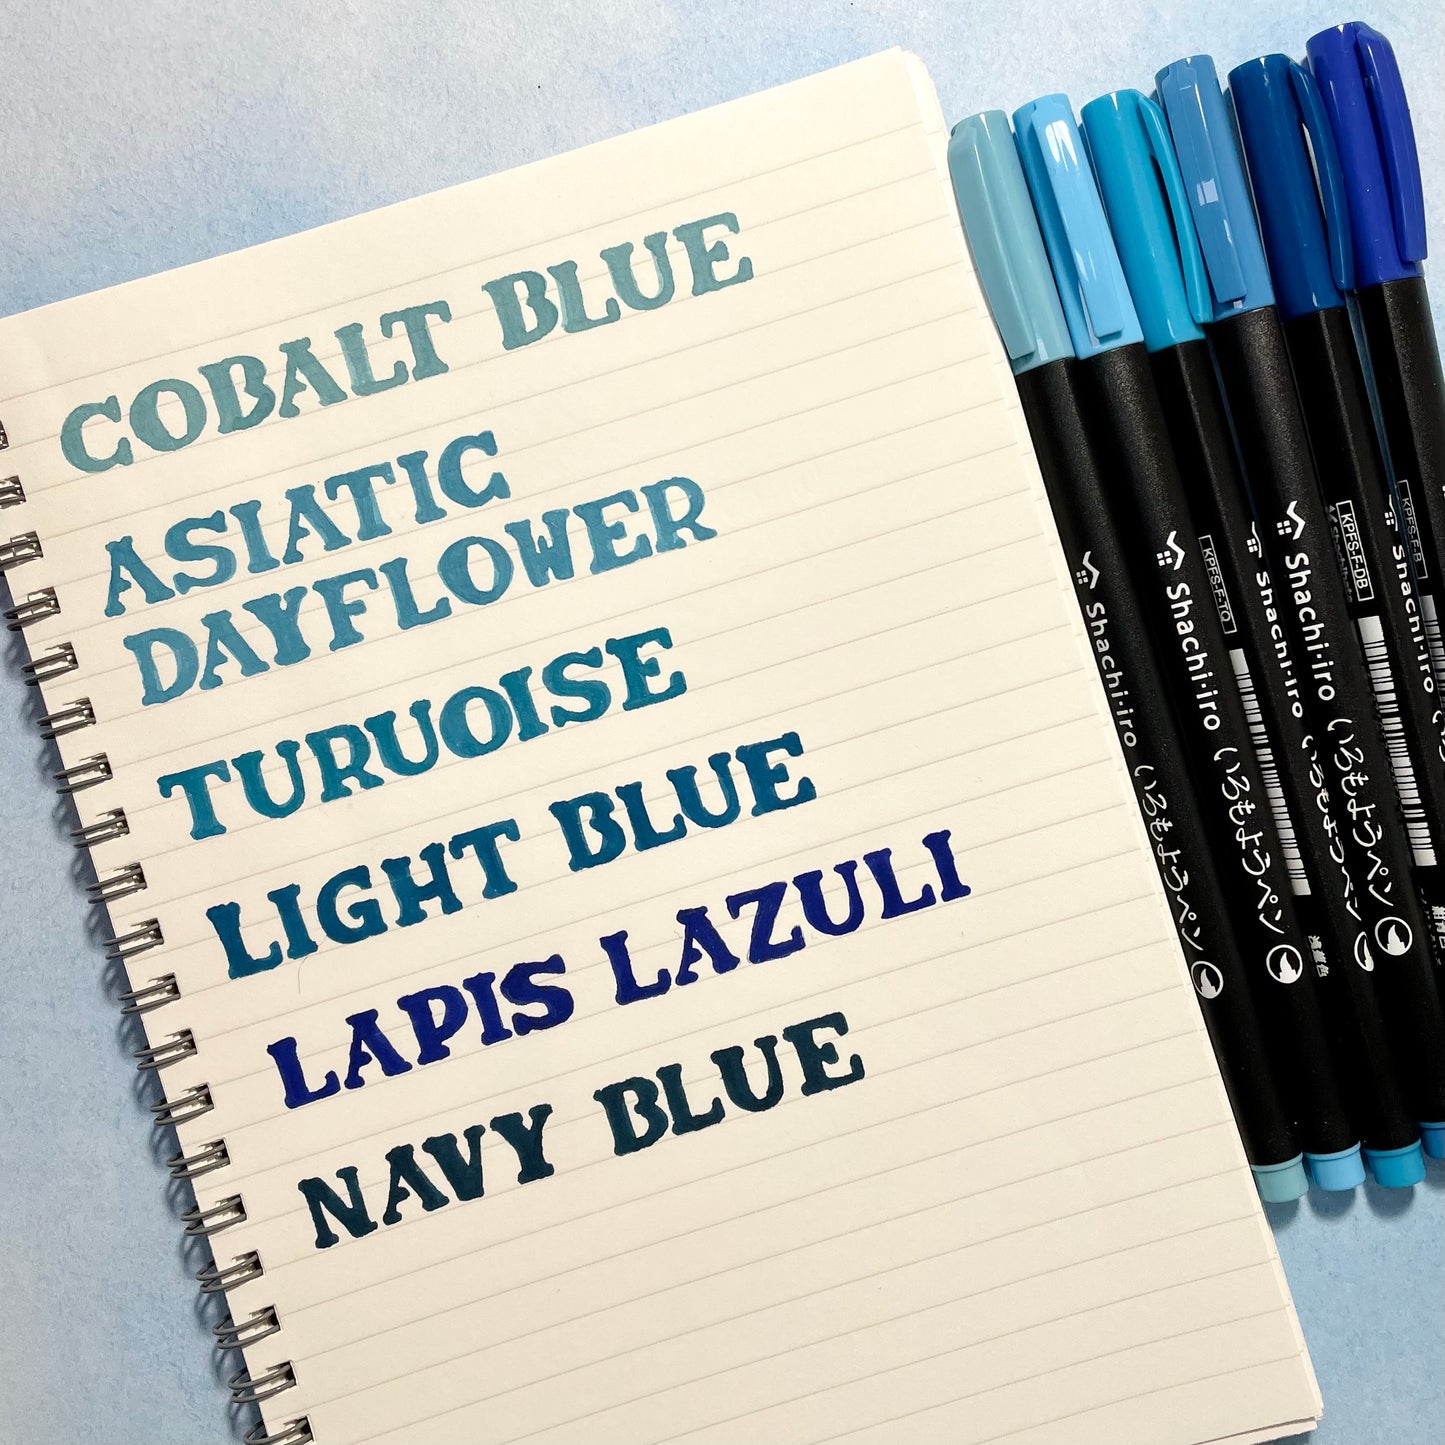 COBALT BLUE
ASIATIC
DAYFLOWER
TURUOISE
LIGHT BLUE
LAPIS LAZULI
NAVY BLUE
Shachi·iro いろもようペン
Shachi·iro いろもようペン
浅葱色
KPFS-F-TQ
Shachi·iro いろもようペン
Shachi·iro いろもようペン
KPFS-F-DB
Shachihata
Shachi·iro
KPFS-F-B